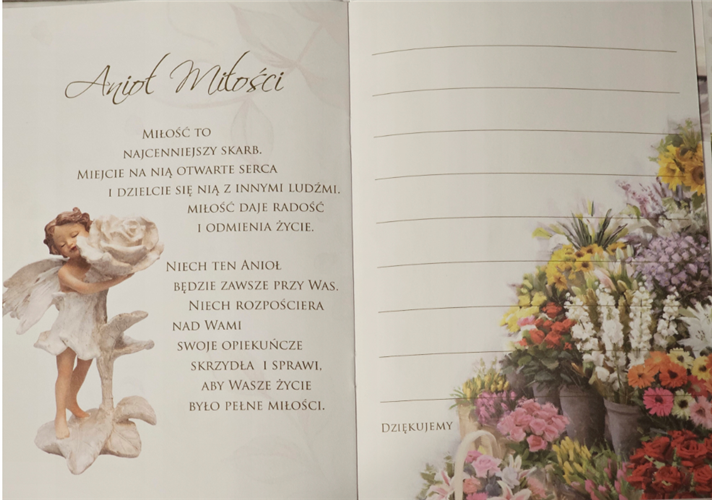 Anioł Miłości
Miłość to
najcenniejszy skarb.
Miejcie na nią otwarte serca
i dzielcie się nią z innymi ludźmi.
Miłość daje radość
i odmienia życie.
Niech ten Anioł
będzie zawsze przy Was.
Niech rozpościera
nad Wami
swoje opiekuńcze
skrzydła i sprawi,
aby Wasze życie
było pełne miłości.
Dziękujemy